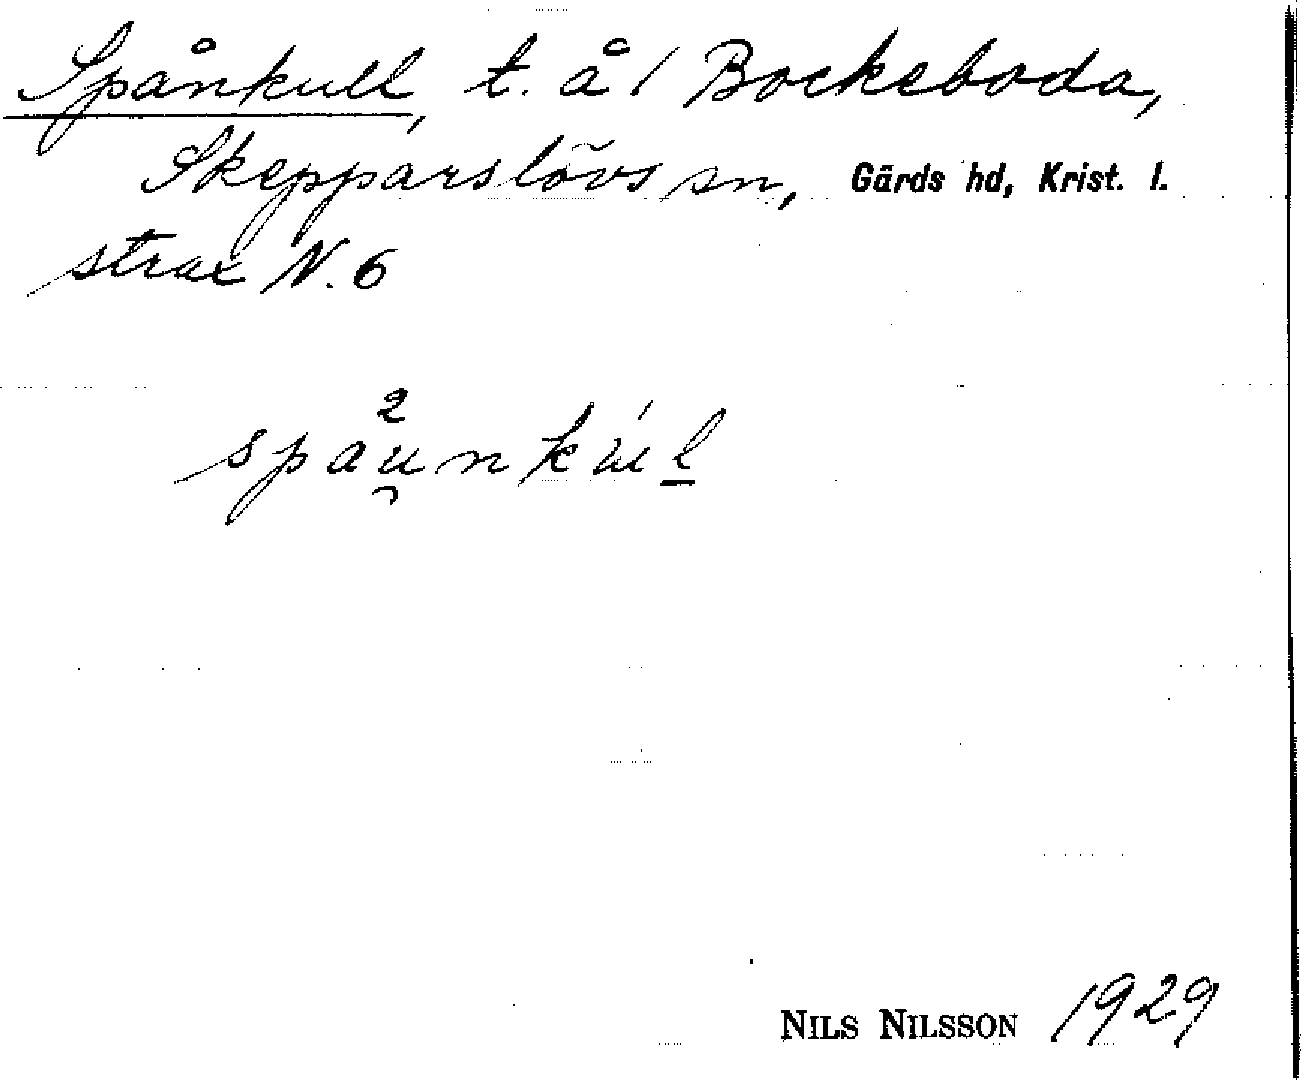 Spånkull, t. å 1 Bockeboda,
Skepparslövs sn, Gärds hd, Krist. l.
strax N. 6
NILS NILSSON 1929